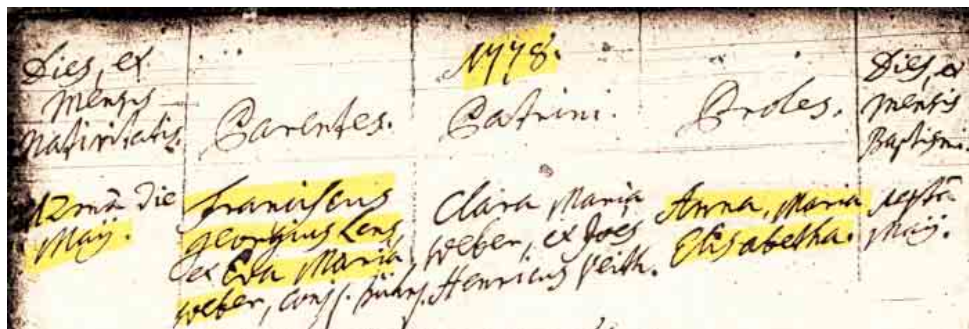 1778.
Dies, et
mensis
Nativitatis.
Parentes.
Patrini.
Proles.
Dies, et
mensis
Baptismi.
12mâ die
Maÿ.
Franciscus
georgius Lens
et Eva Maria
weber, conj.
Clara Maria
weber, et Joës
Henricus Veith.
Anna, Maria
Elisabetha.
Maÿ.